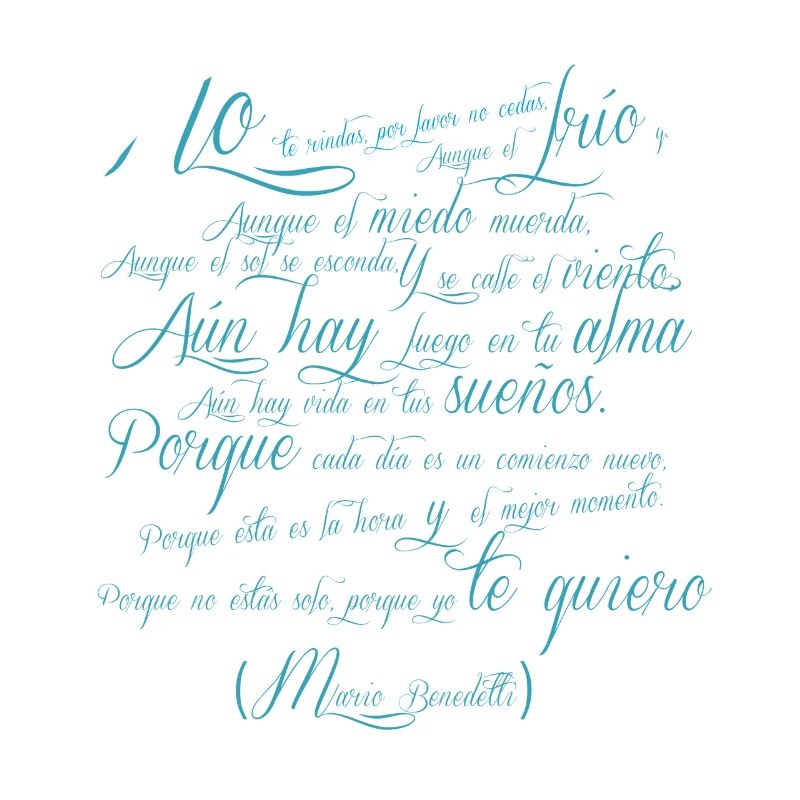 No te rindas, por favor no cedas,
Aunque el frío
Aunque el miedo muerda,
Aunque el sol se esconda, Y se calle el viento,
Aún hay fuego en tu alma
Aún hay vida en tus sueños.
Porque cada día es un comienzo nuevo,
Porque esta es la hora y el mejor momento.
Porque no estás solo, porque yo te quiero
(Mario Benedetti)